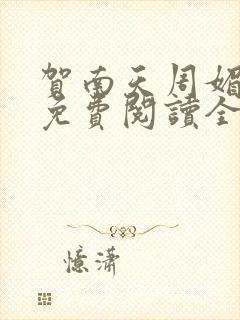 賀南天周媚
免費閱讀全
憶瀟